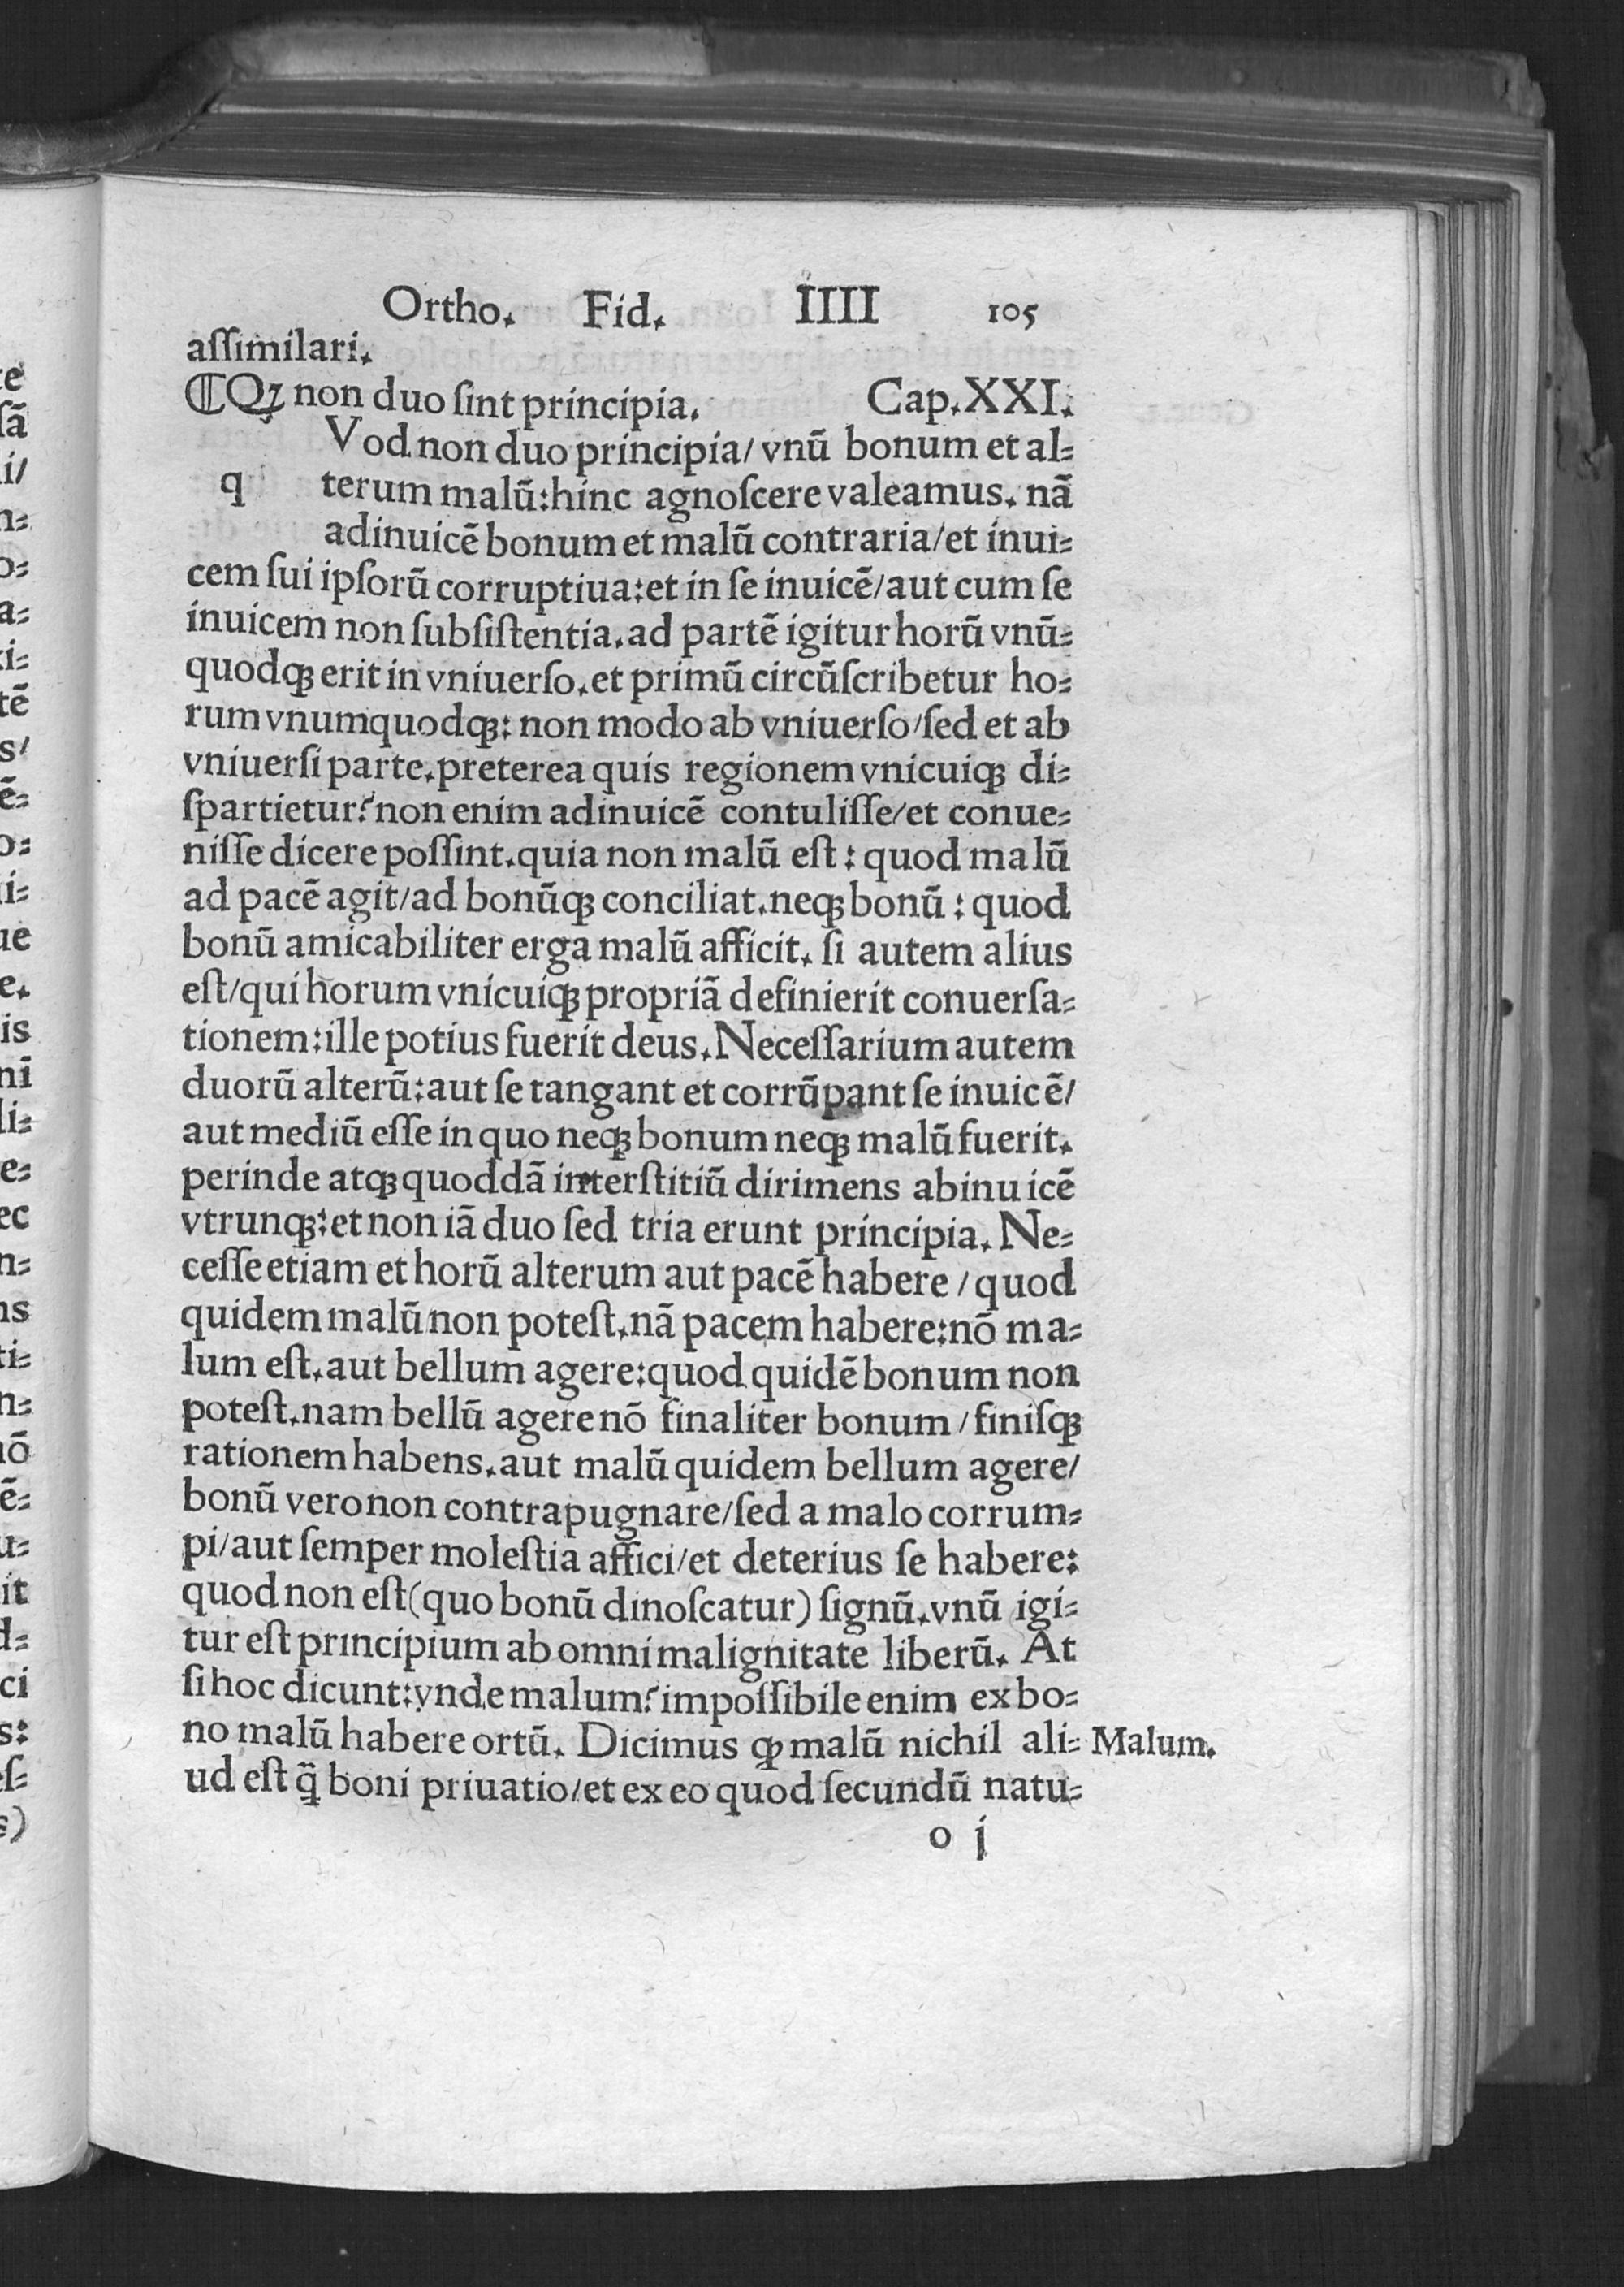 Ortho. Fid. IIII 105
aſſimilari.
⸿Qꝫ non duo ſint principia. Cap.XXI.
Vod non duo principia/ vnū bonum et al-
q terum malū:hinc agnoſcere valeamus. nā
adinuicē bonum et malū contraria/et inui-
cem ſui ipſorū corruptiua:et in ſe inuicē/aut cum ſe
inuicem non ſubſiſtentia.ad partē igitur horū vnū-
quodqꝫ erit in vniuerſo.et primū circūſcribetur ho-
rum vnumquodqꝫ: non modo ab vniuerſo/ſed et ab
vniuerſi parte.preterea quis regionem vnicuiqꝫ di-
ſpartietur?non enim adinuicē contuliſſe/et conue-
niſſe dicere poſſint.quia non malū eſt: quod malū
ad pacē agit/ad bonūqꝫ conciliat.neqꝫ bonū: quod
bonū amicabiliter erga malū afficit. ſi autem alius
eſt/qui horum vnicuiqꝫ propriā definierit conuerſa-
tionem:ille potius fuerit deus.Neceſſarium autem
duorū alterū:aut ſe tangant et corrūpant ſe inuicē/
aut mediū eſſe in quo neqꝫ bonum neqꝫ malū fuerit.
perinde atqꝫ quoddā interſtitiū dirimens abinuicē
vtrunqꝫ:et non iā duo ſed tria erunt principia. Ne-
ceſſe etiam et horū alterum aut pacē habere/quod
quidem malū non poteſt.nā pacem habere:nō ma-
lum eſt.aut bellum agere:quod quidē bonum non
poteſt.nam bellū agere nō finaliter bonum/finiſqꝫ
rationem habens.aut malū quidem bellum agere/
bonū vero non contrapugnare/ſed a malo corrum-
pi/aut ſemper moleſtia affici/et deterius ſe habere:
quod non eſt(quo bonū dinoſcatur) ſignū.vnū igi-
tur eſt principium ab omni malignitate liberū. At
ſi hoc dicunt:vnde malum?impoſſibile enim ex bo-
no malū habere ortū. Dicimus ꝙ malū nichil ali- Malum.
ud eſt q̄ boni priuatio/et ex eo quod ſecundū natu-
o j